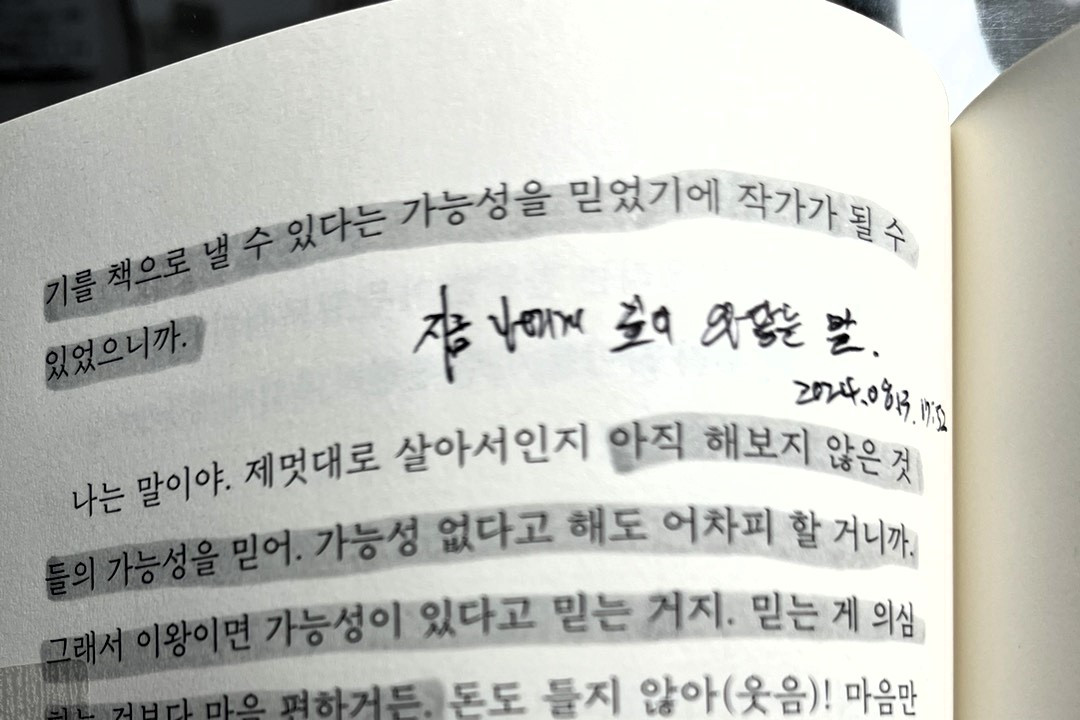 기를 책으로 낼 수 있다는 가능성을 믿었기에 작가가 될 수
있었으니까.
지금 나에게 깊이 와닿는 말.
2024.08.13. 17:52
나는 말이야. 제멋대로 살아서인지 아직 해보지 않은 것
들의 가능성을 믿어. 가능성 없다고 해도 어차피 할 거니까.
그래서 이왕이면 가능성이 있다고 믿는 거지. 믿는 게 의심
하는 것보다 마음 편하거든. 돈도 들지 않아(웃음)! 마음만